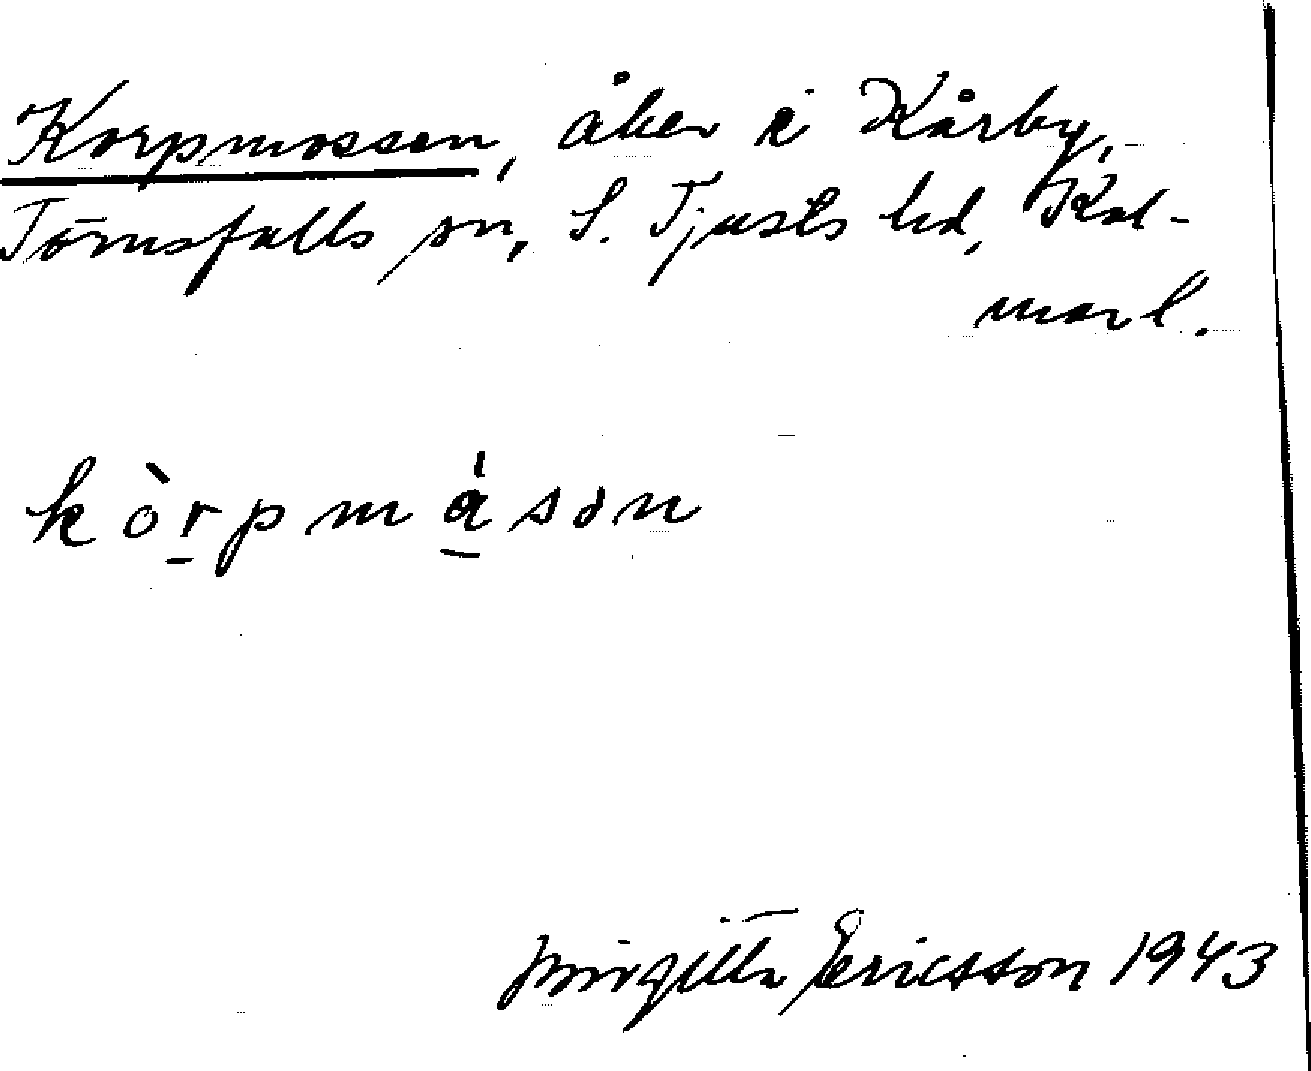 Korpmossen, åker i Kårby,
Törnsfalls sn, S. Tjusts hd, Kal-
mar l.
kòrpmåsən
Birgitta Ericsson 1943